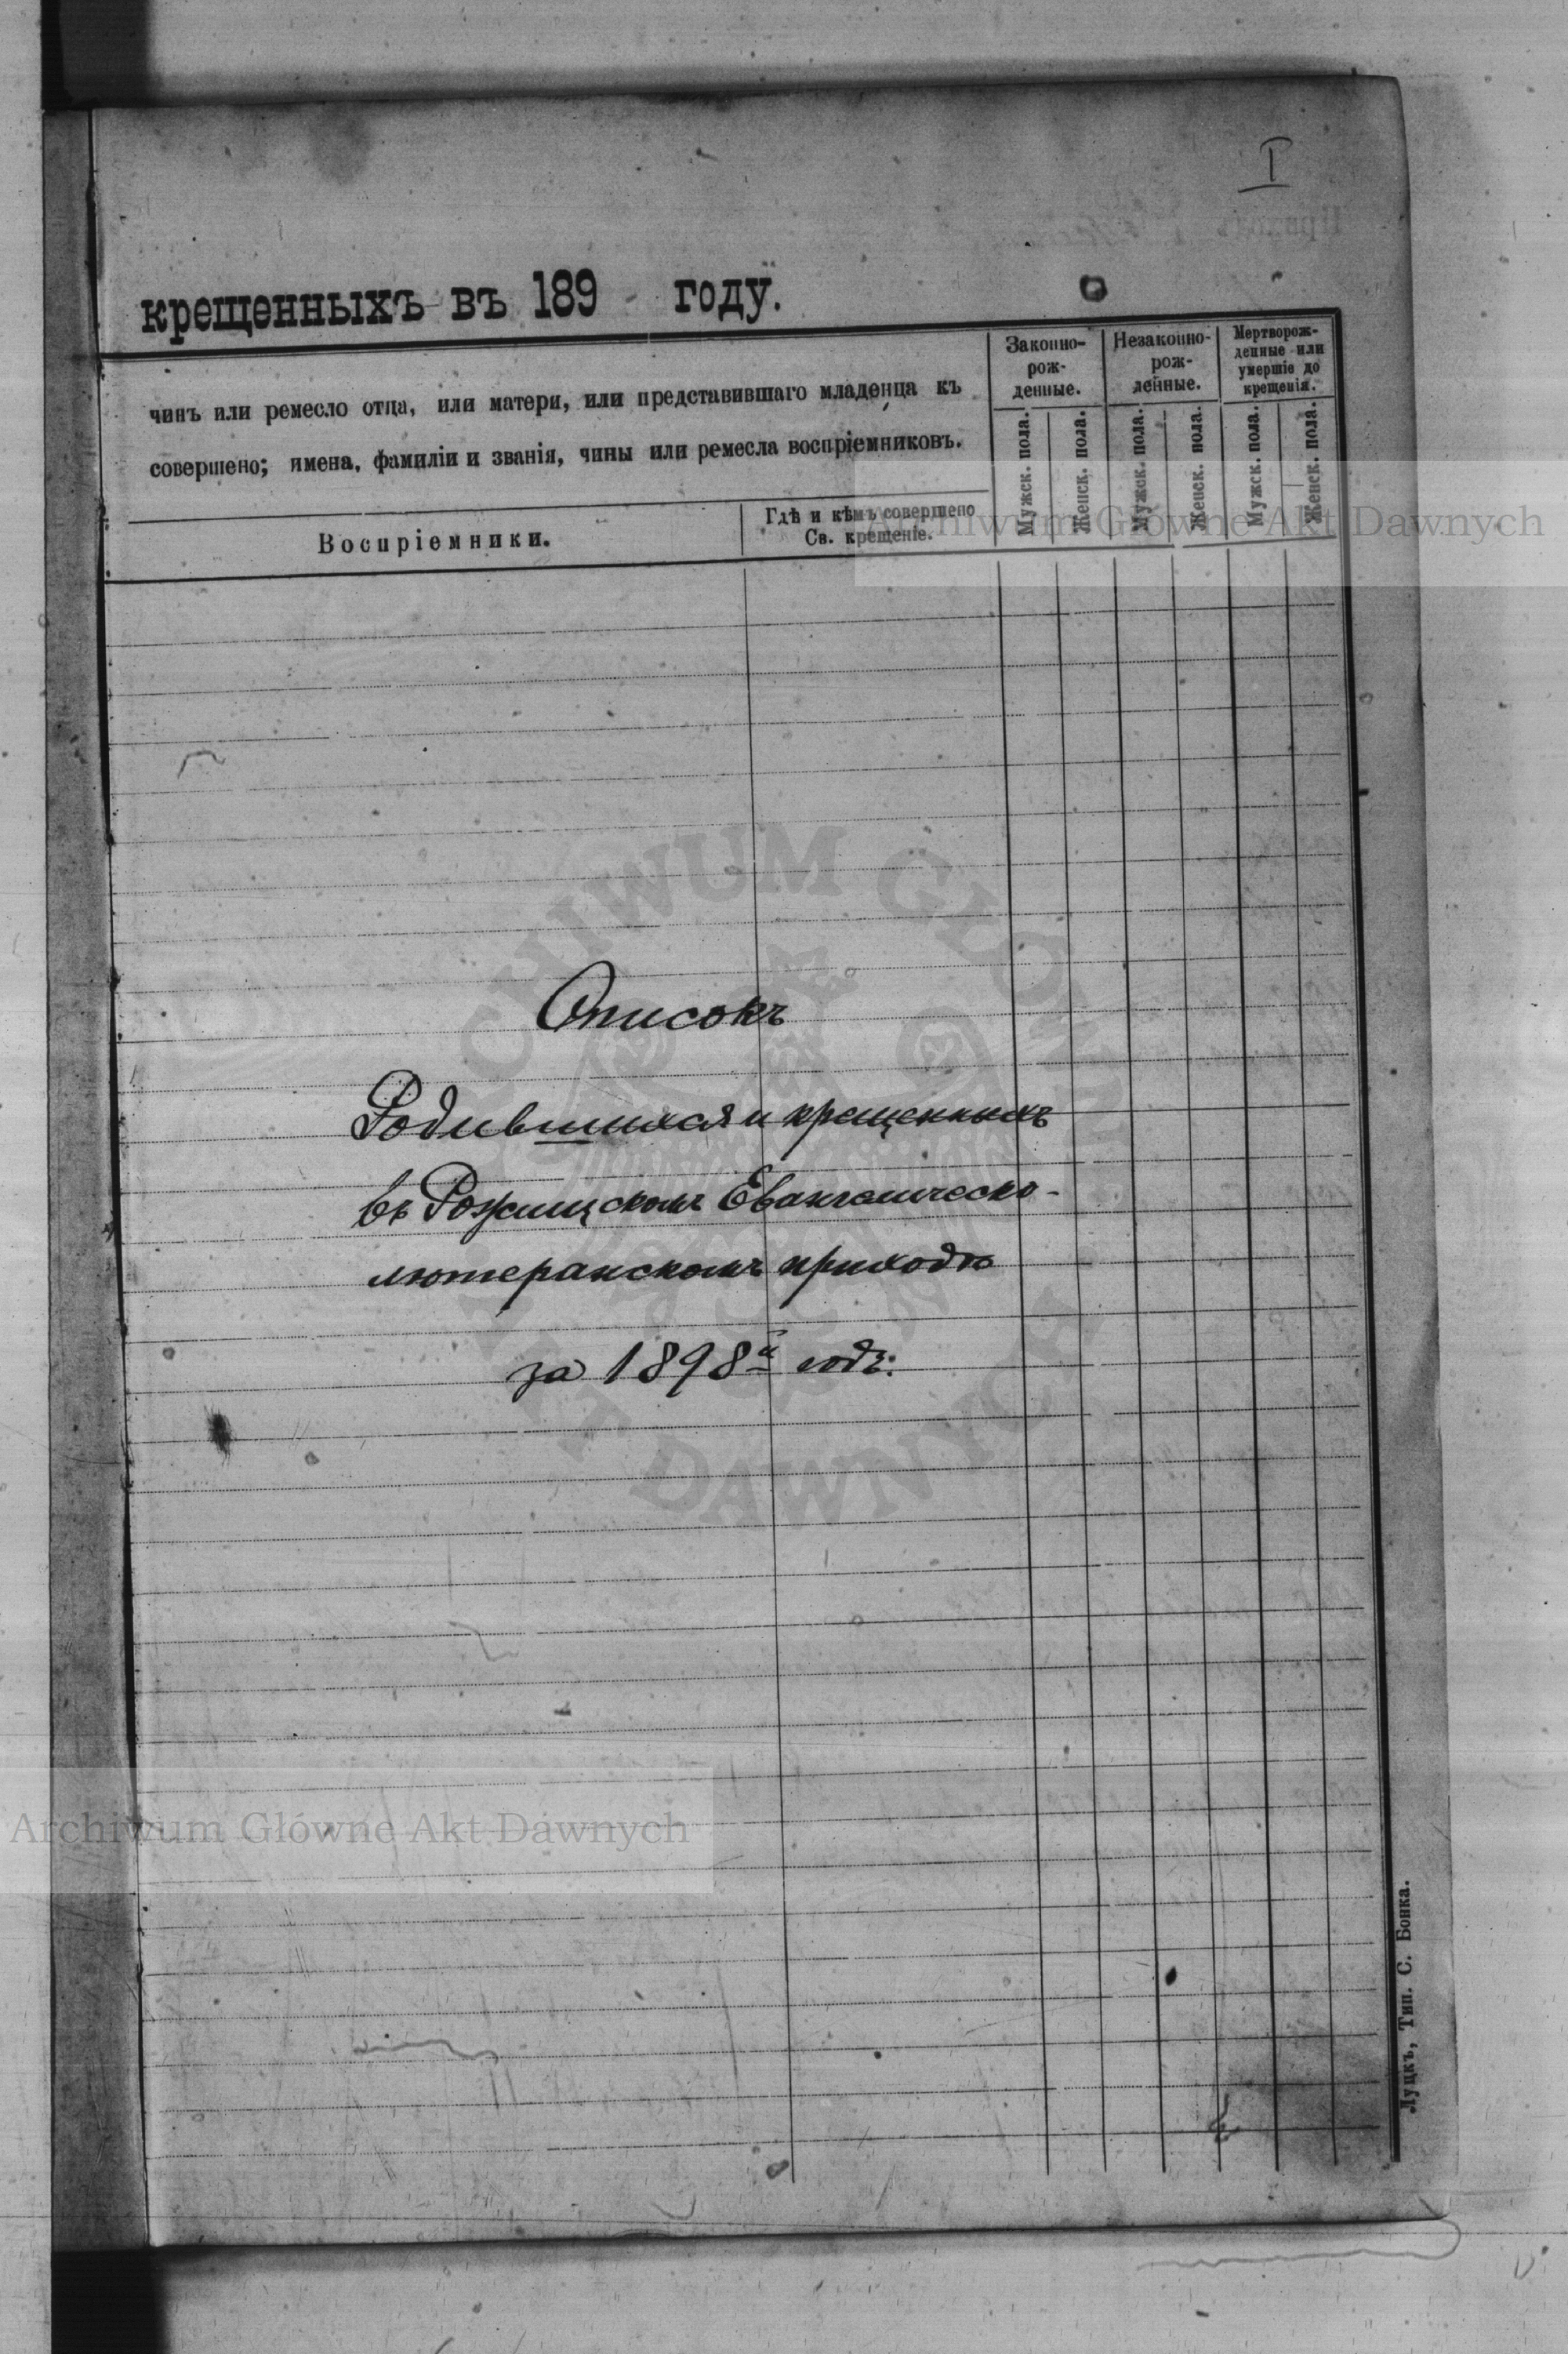 I
крещенныхъ въ 189 году.
чинъ или ремесло отца, или матери, или представившаго младенца къ
совершено; имена, фамиліи и званія, чины или ремесла воспріемниковъ.
Воспріемники.
Гдѣ и кѣмъ совершено
Св. крещеніе.
Законно-
рож-
денные.
Незаконно-
рож-
денные.
Мертворож-
денные или
умершіе до
крещенія.
Мужск. пола.
Женск. пола.
Мужск. пола.
Женск. пола.
Мужск. пола.
Женск. пола.
Archiwum Główne Akt Dawnych
ARCHIWUM GŁÓWNE
AKT DAWNYCH
Списокъ
Родившихся и крещенныхъ
въ Рожищскомъ Евангелическо-
лютеранскомъ приходѣ
за 1898й годъ.
Archiwum Główne Akt Dawnych
Луцкъ, Тип. С. Бонка.